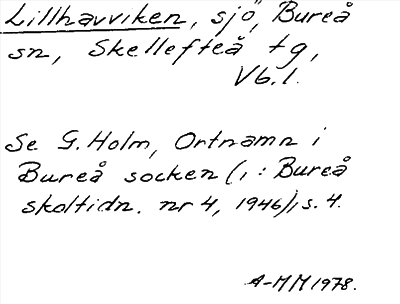 Lillhavviken, sjö, Bureå
sn, Skellefteå tg,
Vb.l.
Se G. Holm, Ortnamn i
Bureå socken (i: Bureå
skoltidn. nr 4, 1946), s. 4.
A-MM 1978.